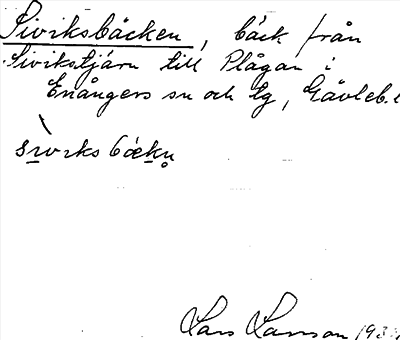 Siviksbäcken, bäck från
Sivikstjärn till Plågan i
Enångers sn och tg, Gävleb.l
sıvıksbäkn̥
Lars Larsson 193